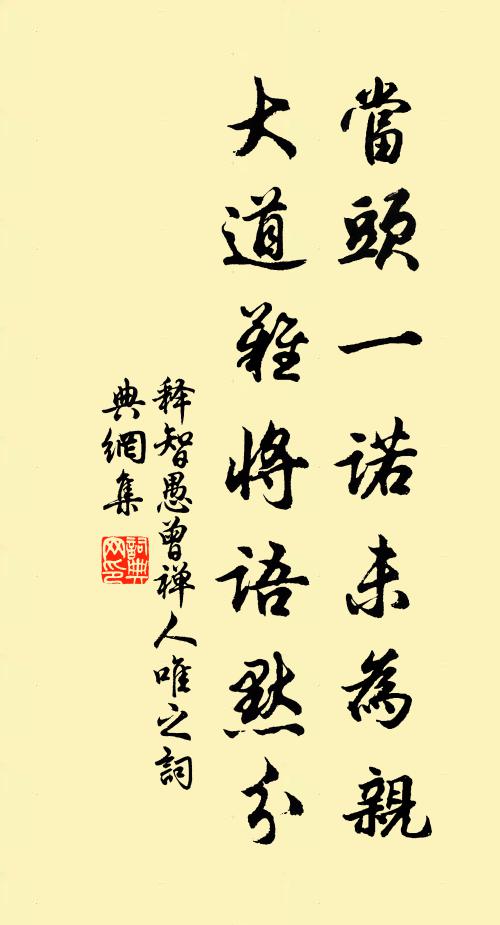 當頭一諾未為親
大道難將語默分
释智愚曾禅人唯之詞
典網集
詞典
网印